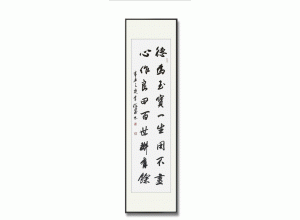 德為至寶一生用不盡
心作良田百世耕有餘